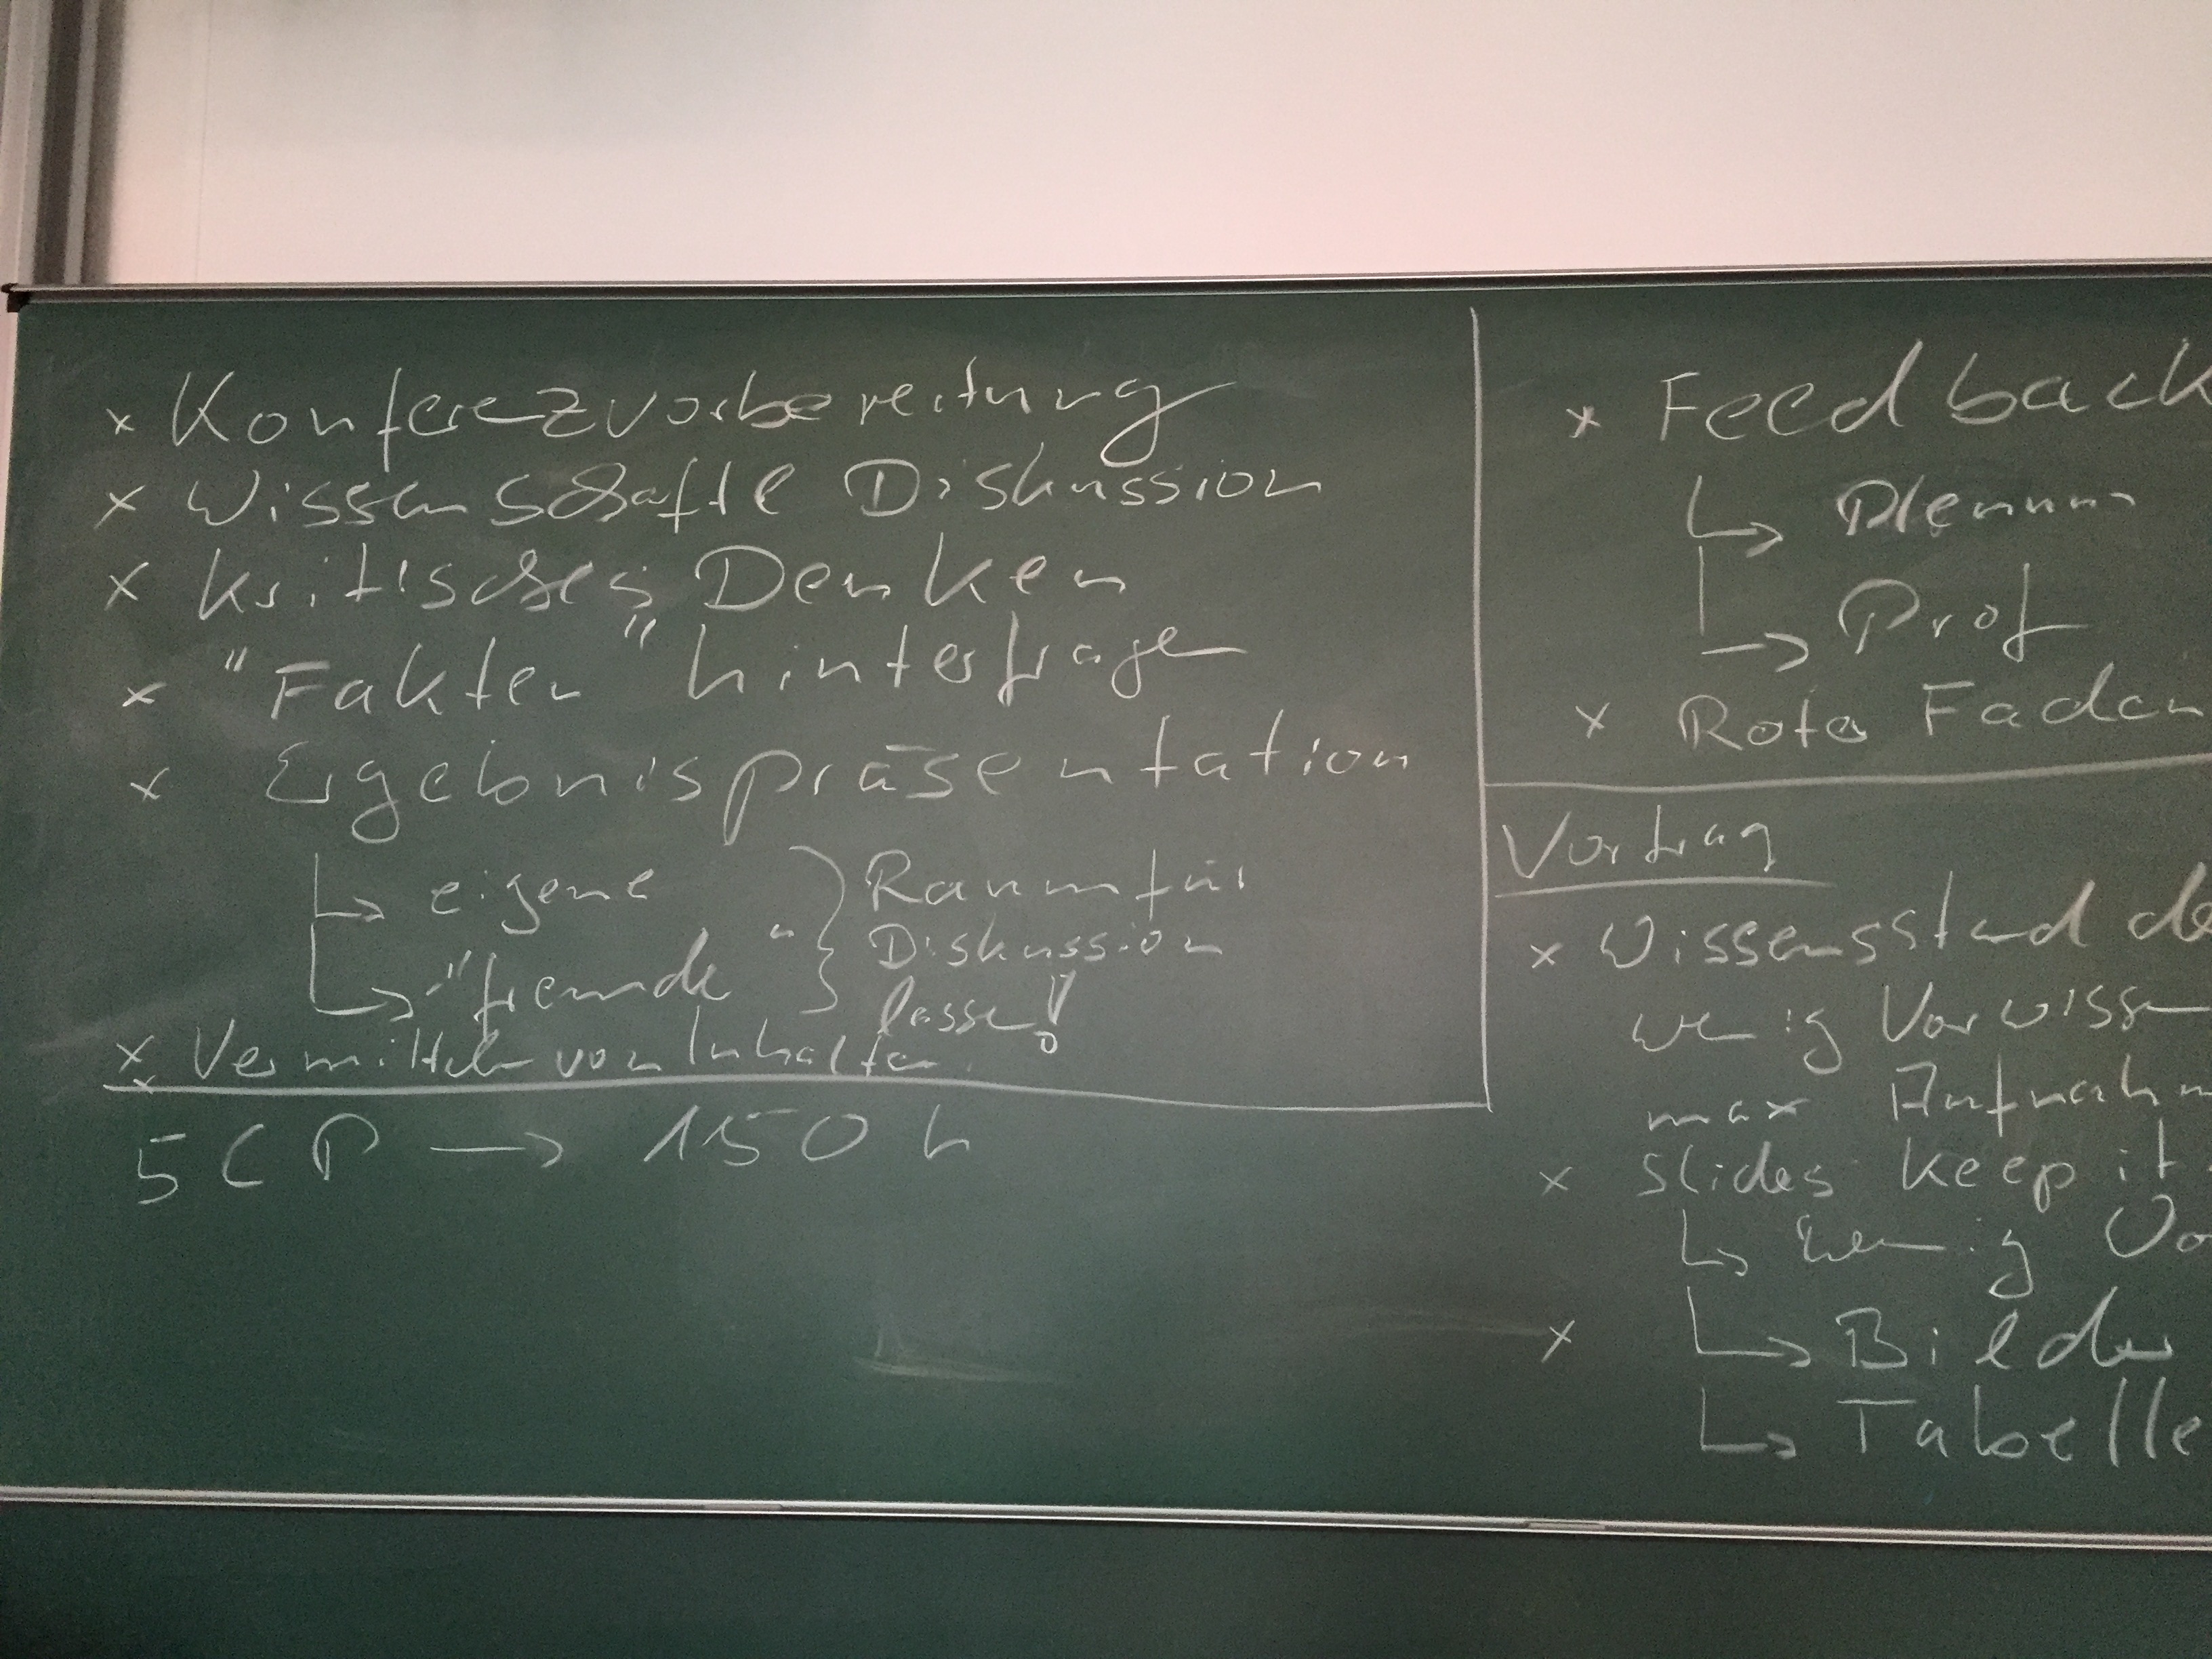 x Konferezvorbereitung
x Wissenschaftl Diskussion
x kritisches Denken
x "Fakten" hinterfragen
x Ergebnispräsentation
↳ eigene } Raum für
↳ "fremde" } Diskussion
lassen!
x Vermitteln von Inhalten
5 CP → 150 h
x Feedback
↳ Plenum
→ Prof
x Roter Faden
Vortrag
x Wissensstand de
wenig Vorwissen
max Aufnahm
x slides keep it
↳ wenig Wo
x ↳ Bilder
↳ Tabelle